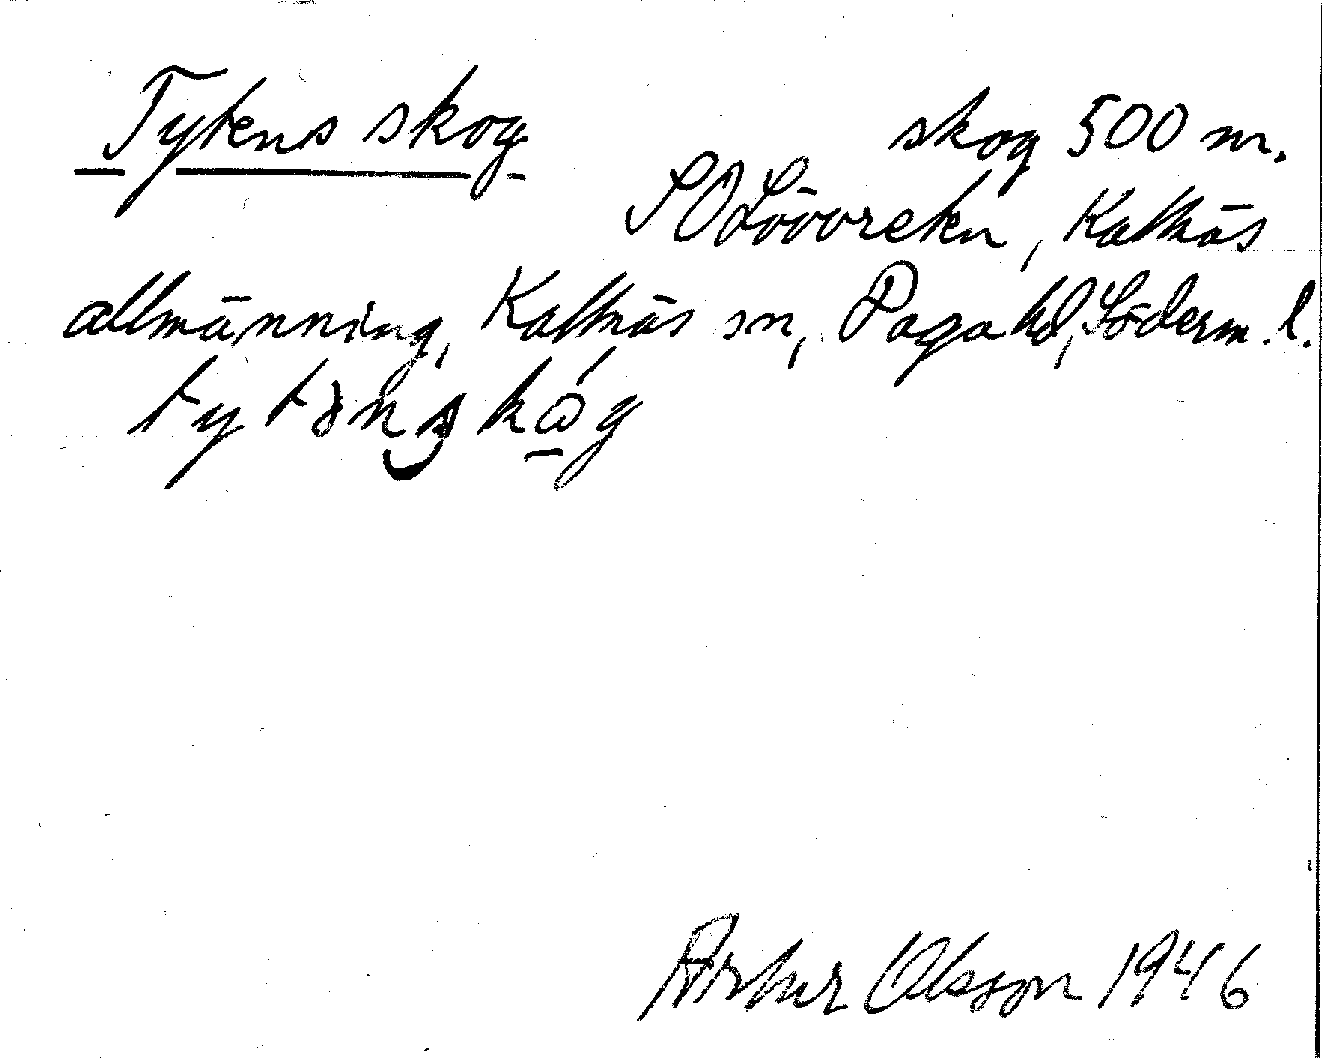 Tytens skog skog 500 m.
SO Lövvreten, Kattnäs
allmänning, Kattnäs sn, Daga hd, Söderm. l.
tytənskóg
Arthur Olsson 1946